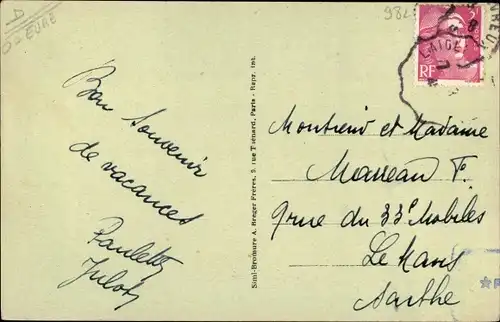 A
02 EURE
982
RF
LAIGLE
Bon souvenir
de vacances
Paulette
Simi-Bromure A. Breger Frères, 9, rue Thénard, Paris - Repr. int.
Monsieur et Madame
Maneau F.
9 rue du 33e Mobiles
Le Mans
Sarthe